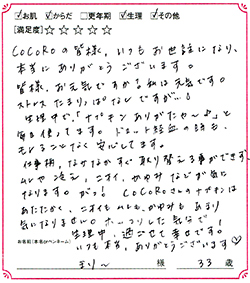 ☑お肌 ☑からだ □更年期 ☑生理 ☑その他
[満足度]☆☆☆☆☆
COCOROの皆様、いつもお世話になり、
本当にありがとうございます。
皆様、お元気ですか?私は元気です。
ストレスたまりっぱなしですが…!
生理中で、「ナプキンありがた～い♪」と
毎日使ってます。ドッと経血の時も、
モレることなく安心してます。
仕事柄、なかなかすぐ取り替える事ができず、
ムレや冷え、ニオイ、かゆみなどが気に
なります。が!COCOROさんのナプキンは
あたたかく、ニオイもムレも、かゆみもあまり
気になりません。ホッコリした気分で
生理中、過ごせて幸せです!
お名前(本名orペンネーム)
いつも本当、ありがとうございます♡
まり～ 様 33歳